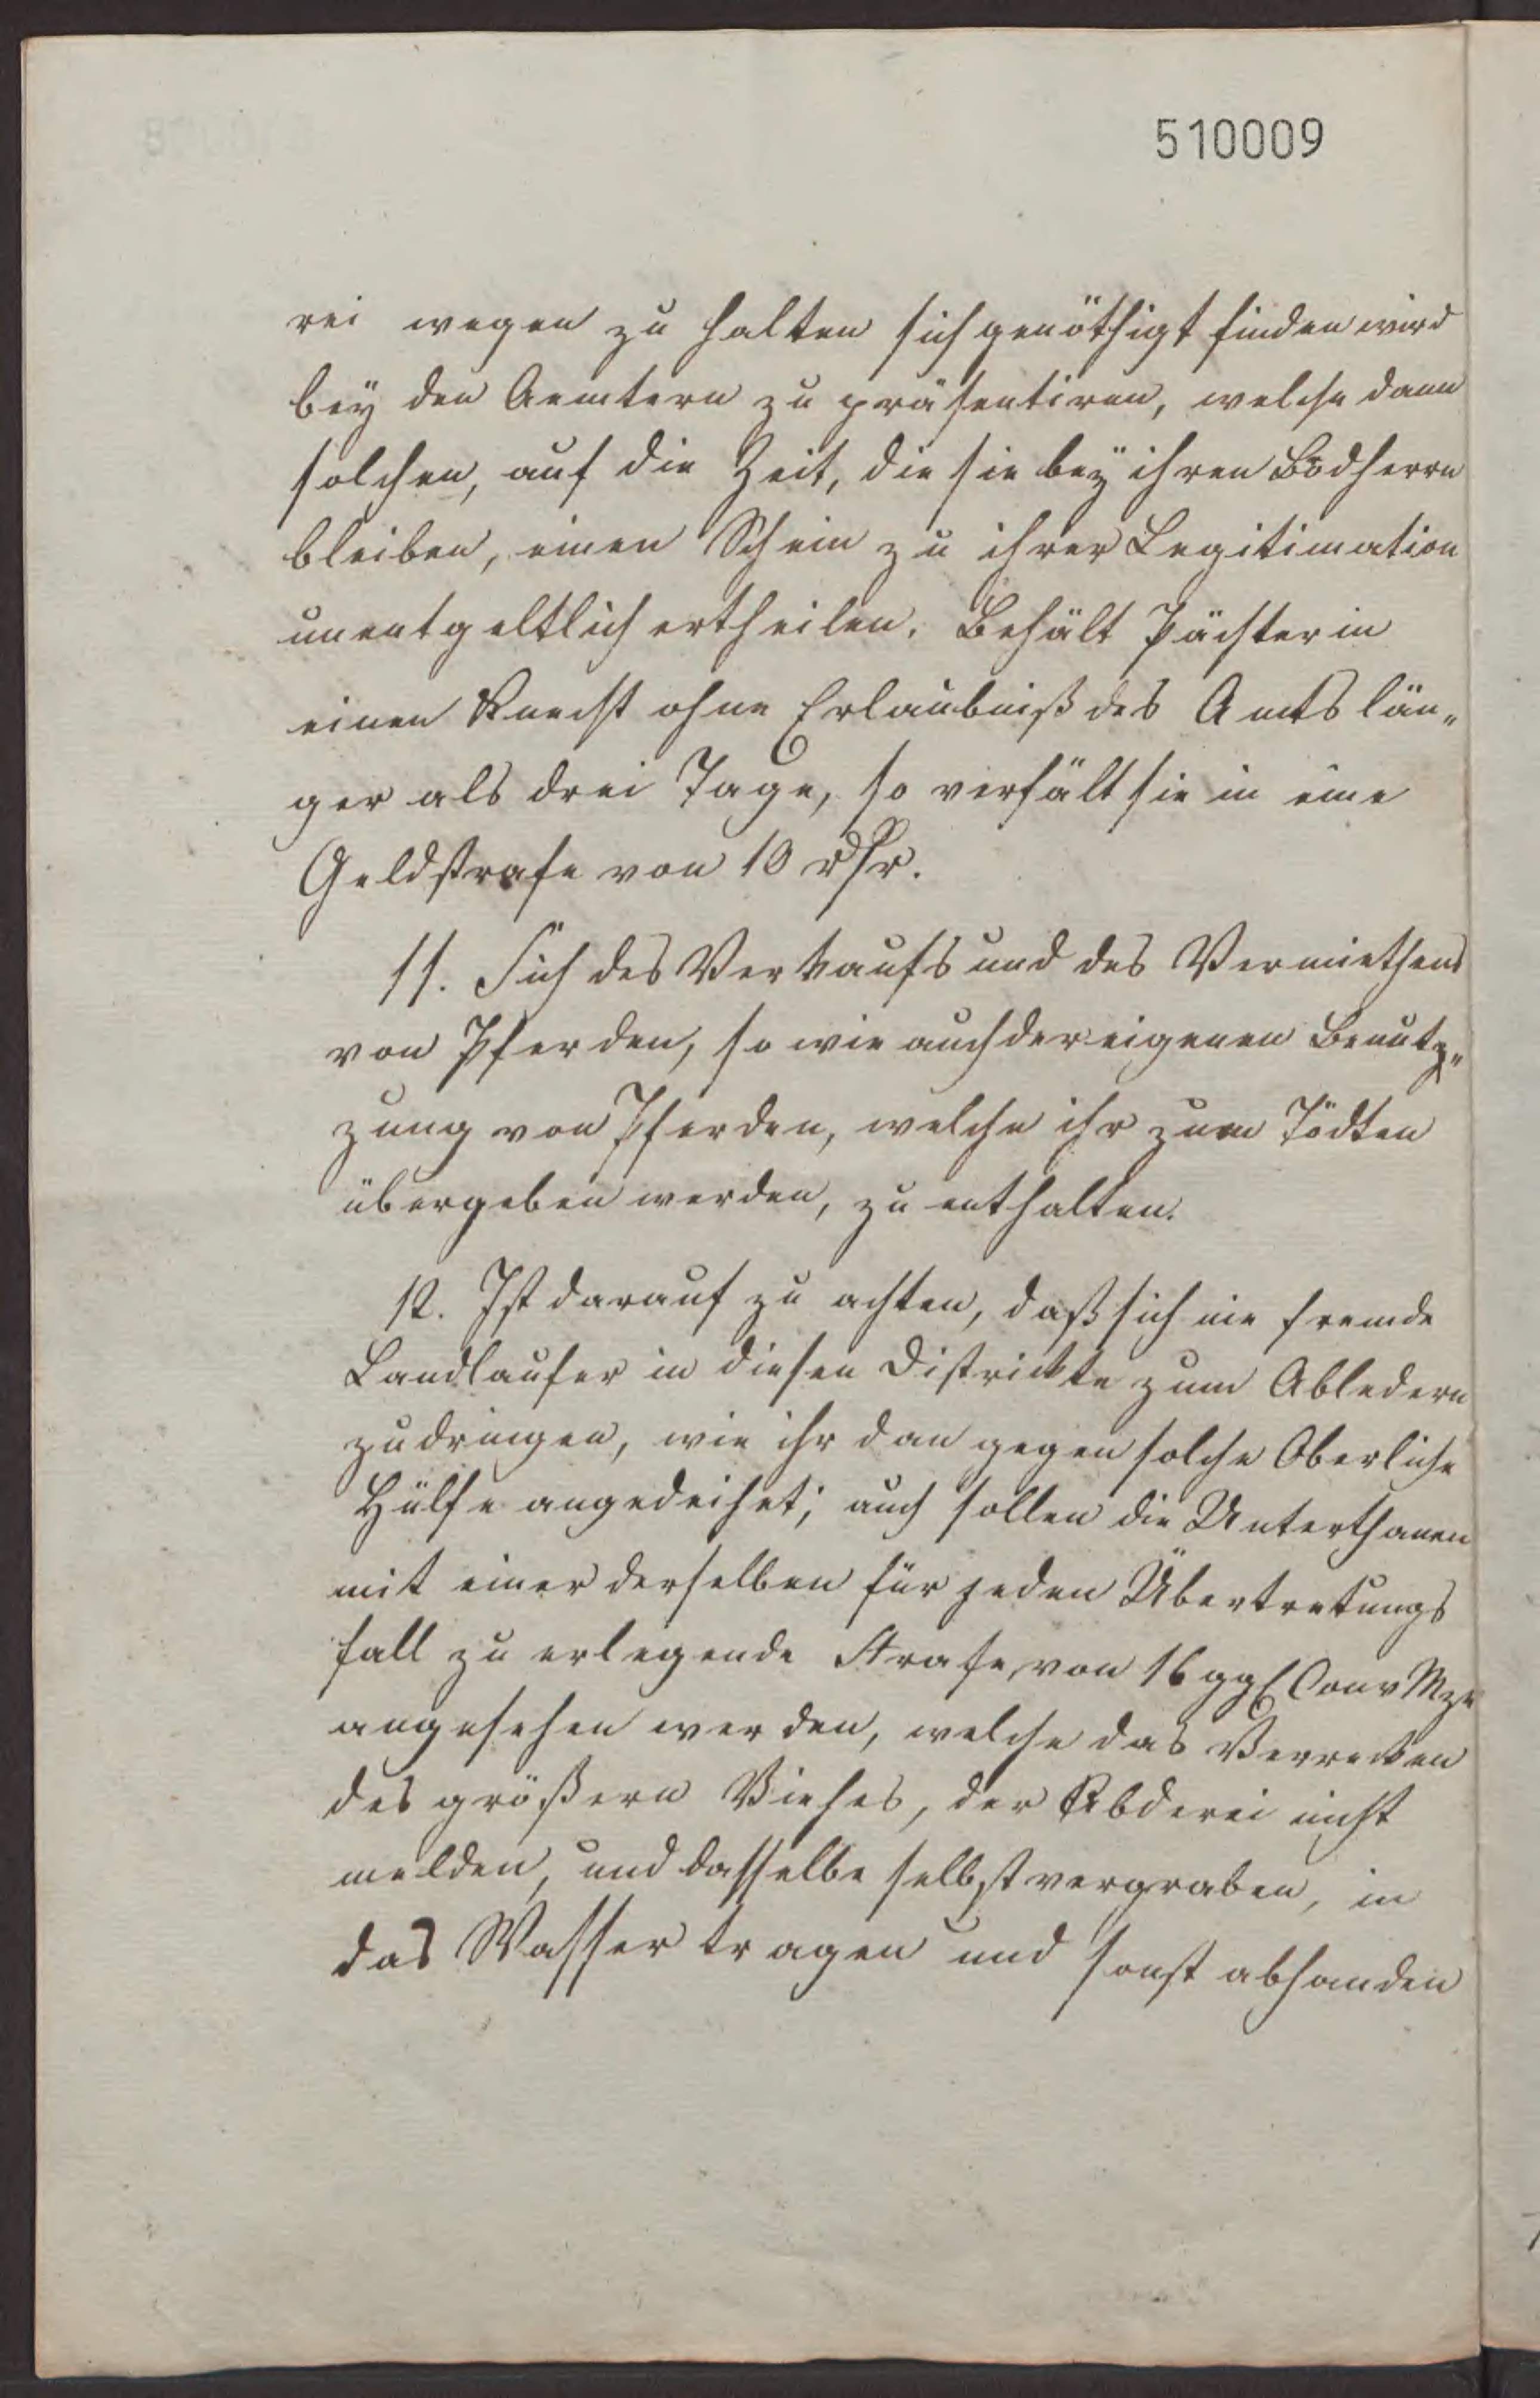 510009
rei wegen zu halten sich genöthigt finden wird
bey den Aemtern zu präsentiren, welche dann
solchen, auf die Zeit, die sie bey ihren Brodherrn
bleiben, einen Schein zu ihrer Legitimation
unentgeltlich ertheilen. Behält Pächterin
einen Knecht ohne Erlaubniß des Amts län„
ger als drei Tage, so verfält sie in eine
Geldstrafe von 10 rthr.
11. Sich des Verkaufs und des Vermiethens
von Pferden, so wie auch der eigenen Benutz„
zung von Pferden, welche ihr zum Tödten
übergeben werden, zu enthalten.
12. Ist darauf zu achten, daß sich nie fremde
Landlaufer in diesen Districkte zum Abledern
zudringen, wie ihr dan gegen solche Oberliche
Hülfe angedeihet; auch sollen die Unterthanen
mit einer derselben für jeden Übertretungs
fall zu erlegende Strafe von 16 ggl Conv Mze
angesehen werden, welche das Verrecken
des größern Viehes, der Abderei nicht
melden, und dasselbe selbst vergraben, in
das Wasser tragen und sonst abhanden